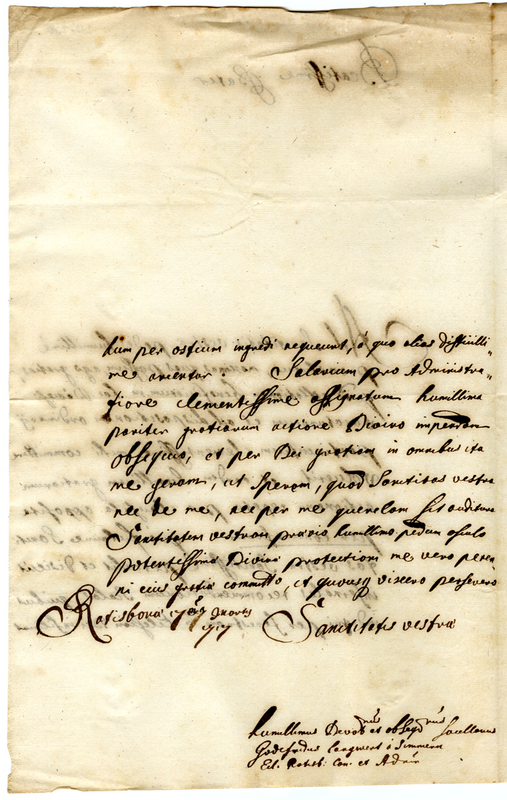 tum per ostium ingredi nequeunt, á quo alias difficilli=
me arcentur. Salarium pro Administra=
tione clementissime assignatum humillima
pariter gratiarum actione Divino impendam
obsequio, et per Dei gratiam in omnibus ita
me geram, ut sperem, quod Sanctitas vestra
nec de me, nec per me querelam sit auditura
Sanctitatem vestram prævio humillimo pedum osculo
potentissimæ Divinæ protectioni me vero peren
ni eius gratiæ committo, et quousq vixero persevero
Ratisbonæ 17 Martÿ
1717 Sanctitatis vestræ
humillimus Devotmus et obseqmus Sacellanus
Godefridus Langwert á Simmern
Ecl. Ratisb: Can: et Admr